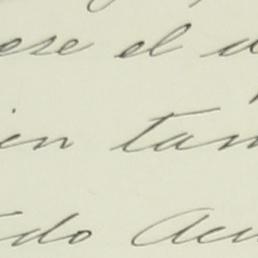 ese el
en tam
do Acu